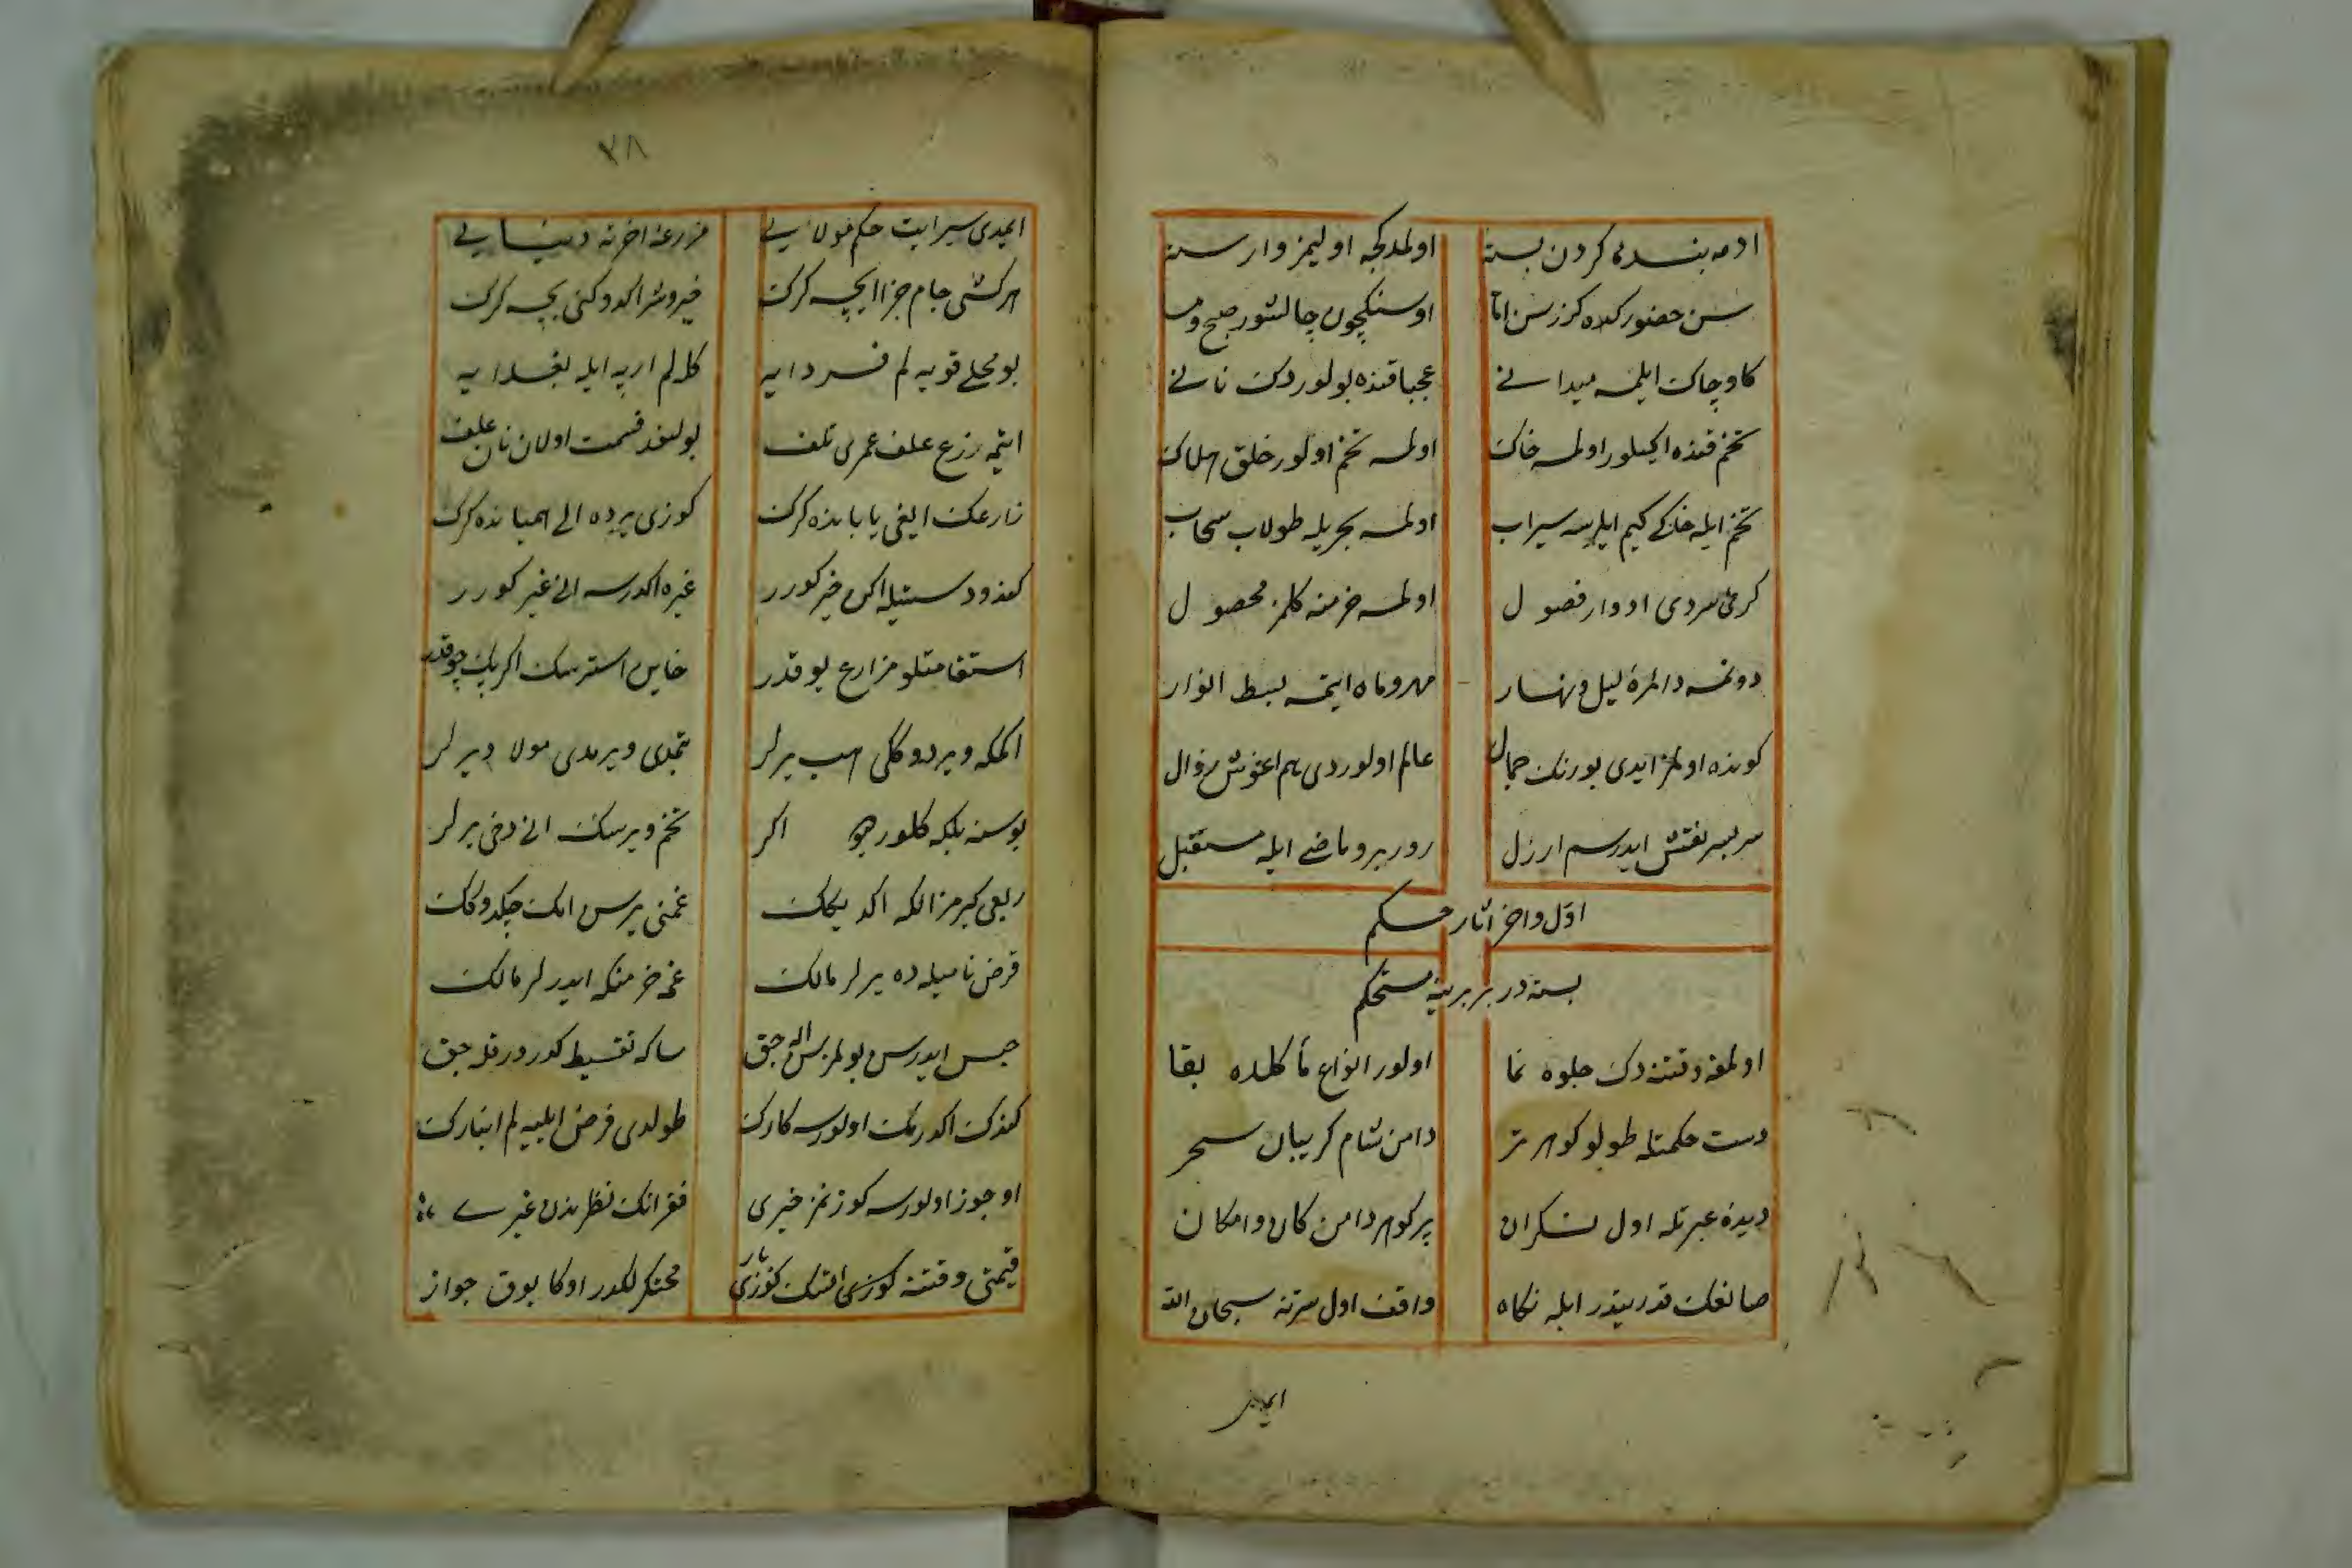 ادمه بنده کردن بسته
اولمدکجه اولیمز وارسته
سن حضور کده کزرسن اما
اوسنکچون چالشور صبح و مسا
کاو چاک ایلمسه میدانی
عجبا قنده بولوردک نانی
تخم قنده اکیلور اولمسه خاک
اولمسه تخم اولور خلق هلاک
تخم ایله خاکی کیم ایلرسه سیراب
اولمسه بحریله طولاب سحاب
کرمی سردی ادوار فصول
اولمسه خرمنه کلمز محصول
دونمسه دائرهٔ لیل و نهار
مهر و ماه ایتمسه بسط انوار
کونده اولمز ایدی بورنک جمال
عالم اولوردی هم اغوش زوال
سربسر نقش ایدر سم ازل
رور برو ماضی ایله مستقبل
اول و اخر اثار حکم
بسته در بربرینه مستحکم
اولمغه وقتنه دک جلوه نما
اولور انواع مأکلده بقا
دست حکمتله طولو کوهر تر
دامن شام کریبان سحر
دیدهٔ عبرتله اول نکران
پر کوهر دامن کان و امکان
صانعک قدرینه در ایله نکاه
واقف اول سرینه سبحان الله
ایمدی
٣٨
ایمدی سیر ایت حکم مولایی
مزرعهٔ اخرته دنیایی
هر کشی جام جزا ایچسه کرک
خیر و شر اکدوکنی بچسه کرک
بو محلی قویه لم فردایه
کله لم ارپه ایله بغدایه
ایتمه زرع علف عمری تلف
بولنند قسمت اولان نان علف
زارعک ایغی یابانده کرک
کوزی یرده الی همیانده کرک
کندو دستیله اکن خیر کورر
غیره اکدرسه انی غیر کورر
استقامتلو مزارع یوقدر
خاین استرسک اکر پک چوقدر
اکمکه ویردوکلی هب یرلر
بتمدی ویرمدی مولا دیرلر
بوسنه بلکه کلور جو اکر
تخم ویرسک انی دخی یرلر
ریعی کیرمز الکه اکدیکک
غمنی یرسن امک چکدوکک
قرض نامیله ده یرلر مالک
غم خرمنکه ایدرلر مالک
حبس ایدرسن بولمزسن اله جق
ساکه تقسیط کدر ور قله جق
کندک اکدرمک اولورسه کارک
طولدی فرض ایلیه لم انبارک
اوجوز اولورسه کوزتمز خیری
فقرانک نظرندن غیری
قیمتی وقتنه کوزسی انک کوزی
محتکرلکدر اوکا یوق جواز